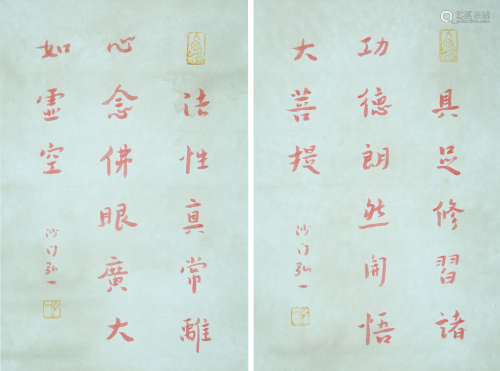 具足修習諸
功德朗然開悟
大菩提
沙门弘一
法性真常離
心念佛眼廣大
如虛空
沙门弘一